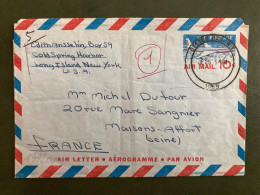 5
Edith Anssehn, Box 59
Cold Spring Harbor
Long Island New York
U.S.A.
1
AIR MAIL 10
Mme Michel Dutour
20 rue Marc Sangnier
Maisons-Alfort
(Seine)
FRANCE
AIR LETTER • AÉROGRAMME • PAR AVION